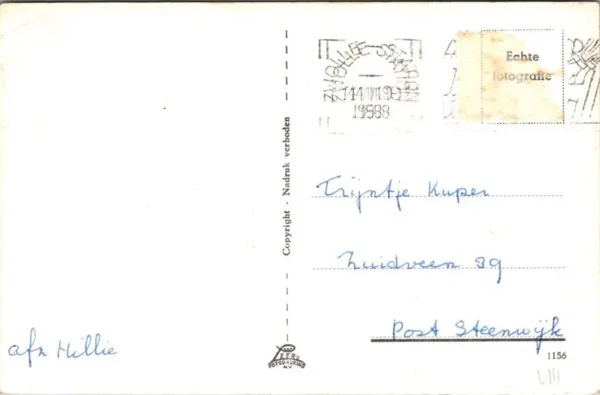 ZWOLLE-STATION
1968
Echte
fotografie
Copyright - Nadruk verboden
Trijntje Kuper
Zuidveen 39
Post Steenwijk
afz Hillie
1156